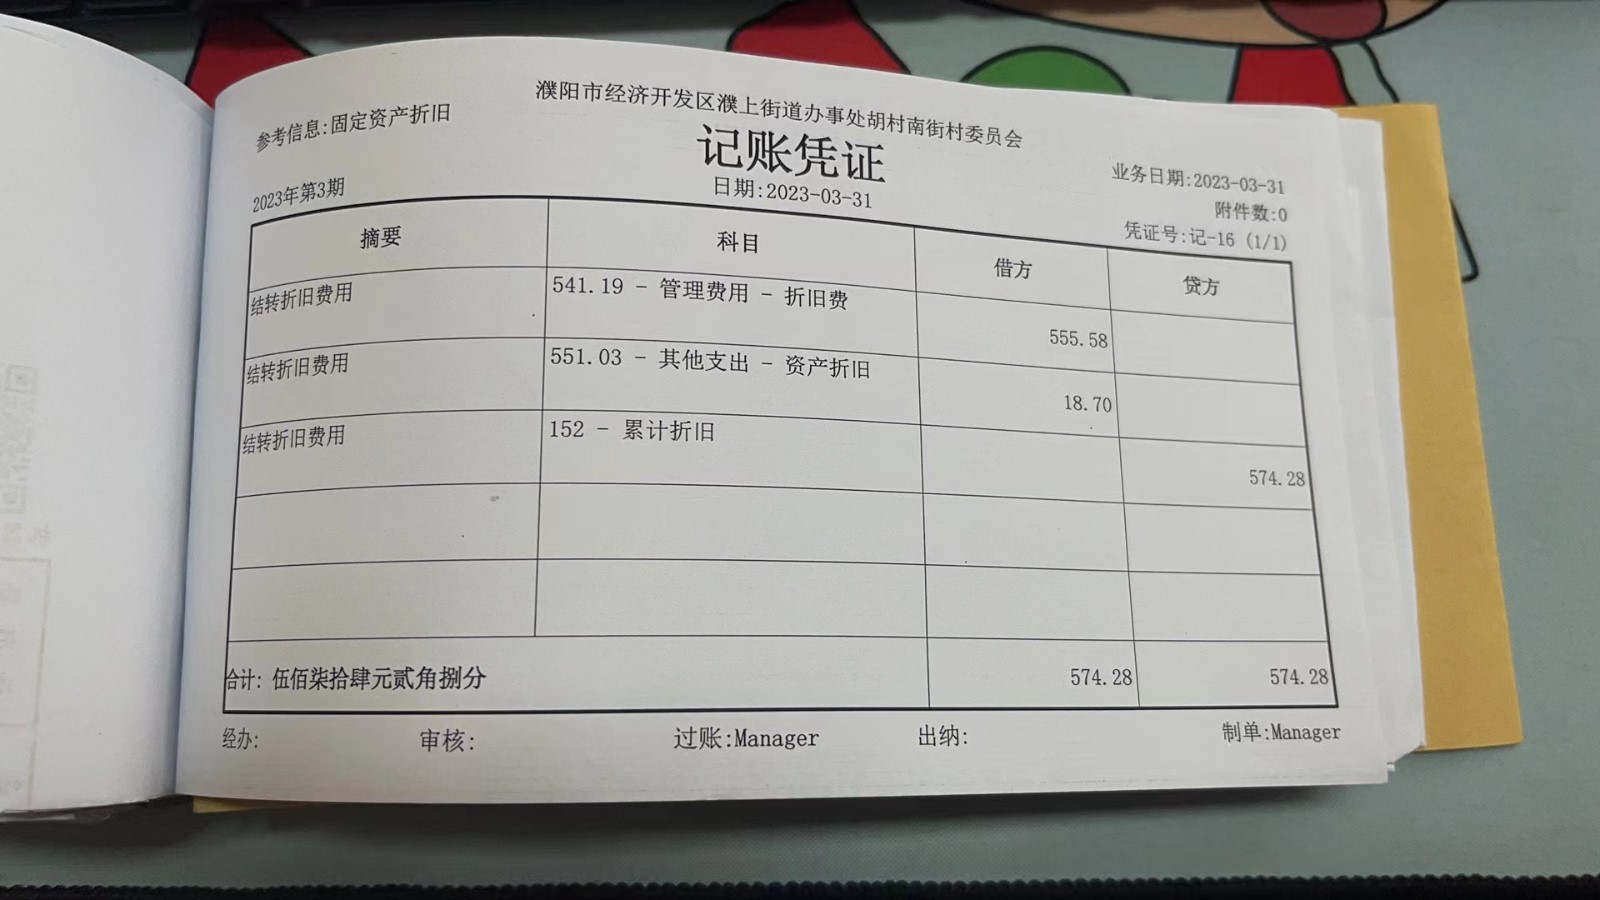 濮阳市经济开发区濮上街道办事处胡村南街村委员会
参考信息:固定资产折旧
记账凭证
业务日期:2023-03-31
2023年第3期
日期:2023-03-31
附件数:0
凭证号:记-16 (1/1)
摘要 科目 借方 贷方
结转折旧费用 541.19 - 管理费用 - 折旧费 555.58
结转折旧费用 551.03 - 其他支出 - 资产折旧 18.70
结转折旧费用 152 - 累计折旧 574.28
合计: 伍佰柒拾肆元贰角捌分 574.28 574.28
经办: 审核: 过账:Manager 出纳: 制单:Manager